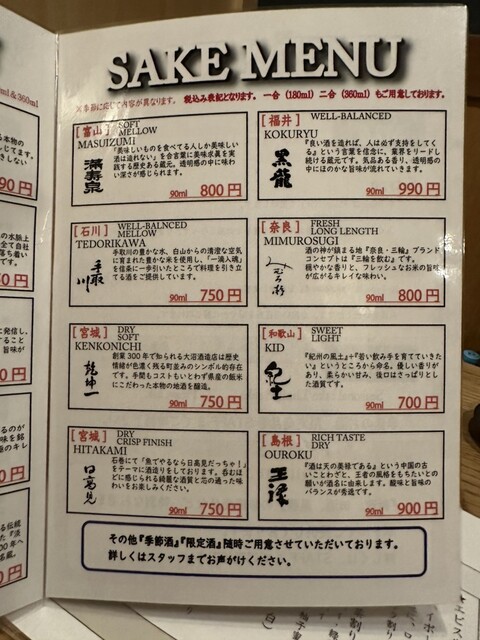 SAKE MENU
※季節に応じて内容が異なります。 税込み表記となります。 一合 (180ml) 二合 (360ml) もご用意しております。
[富山] SOFT
MELLOW
MASUIZUMI
『美味しいものを食べてる人しか美味しい
酒は造れない』を合言葉に美味求眞を実
践する歴史ある蔵元。透明感の中に味わ
い深さが感じられます。
満寿泉
90ml 800円
[福井] WELL-BALANCED
KOKURYU
『良い酒を造れば、人は必ず支持をしてく
る』という言葉を信念に、業界をリードし
続ける蔵元です。気品ある香り、透明感の
中にほのかな旨味が流れていきます。
黒龍
90ml 990円
[石川] WELL-BALNCED
MELLOW
TEDORIKAWA
手取川の豊かな水、白山からの清澄な空気
に育まれた豊かな米を使用し、「一滴入魂」
を信条に一歩引いたところで料理を引き立
てる酒をご提供しています。
手取川
90ml 750円
[奈良] FRESH
LONG LENGTH
MIMUROSUGI
酒の神が鎮まる地『奈良・三輪』ブランド
コンセプトは『三輪を飲む』です。
穏やかな香りと、フレッシュなお米の旨味
が広がるキレイな味わい。
みむろ杉
90ml 800円
[宮城] DRY
SOFT
KENKONICHI
創業300年で知られる大沼酒造店は歴史
情緒が色濃く残る町並みのシンボル的存在
です。手間もコストもいとわず県産の飯米
にこだわった本物の地酒を醸造。
乾坤一
90ml 750円
[和歌山] SWEET
LIGHT
KID
『紀州の風土』+『若い飲み手を育てていきた
い』というところから命名。優しい香りが
あり、柔らかい甘み、後口はさっぱりとし
た酒質です。
紀土
90ml 700円
[宮城] DRY
CRISP FINISH
HITAKAMI
石巻にて「魚でやるなら日高見だっちゃ！」
をテーマに酒造りをしております。呑むほ
どに感じられる綺麗な酒質と芯の通った味
わいをお楽しみください。
日高見
90ml 750円
[島根] RICH TASTE
DRY
OUROKU
『酒は天の美禄である』という中国の古
いことわざと、王者の風格をもちたいとの
願いが酒名に由来します。酸味と旨味の
バランスが秀逸です。
王祿
90ml 900円
その他『季節酒』『限定酒』随時ご用意させていただいております。
詳しくはスタッフまでお声がけください。